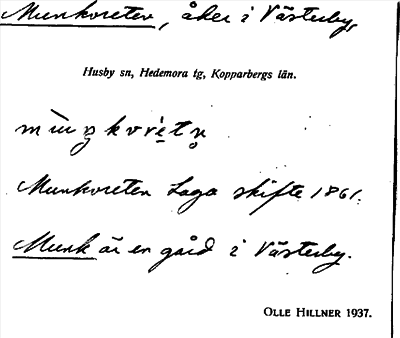 Munkvreten, åker i Västerby,
Husby sn, Hedemora tg, Kopparbergs län.
Munkvreten Laga skifte 1861.
Munk är en gård i Västerby.
OLLE HILLNER 1937.